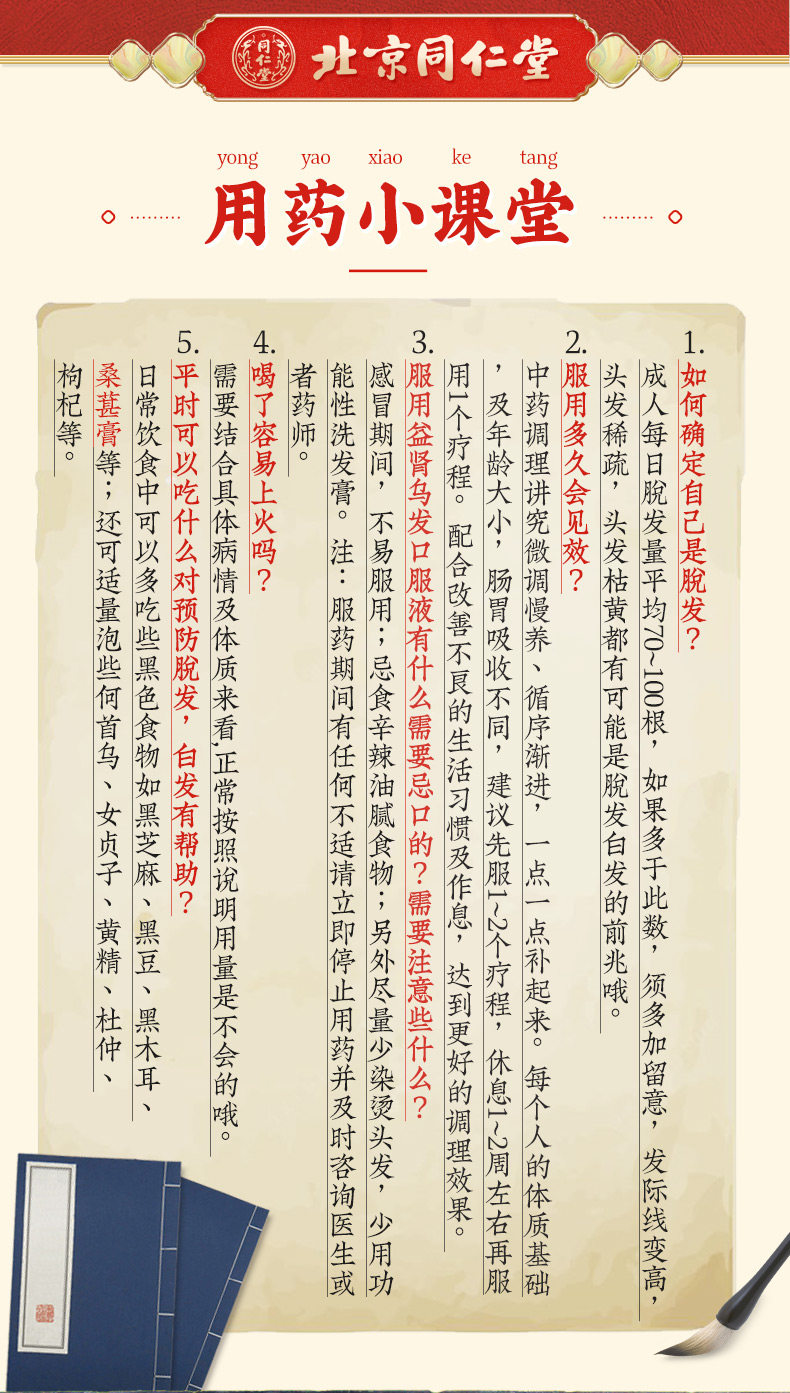 同仁堂
北京同仁堂
yong yao xiao ke tang
用药小课堂
1.如何确定自己是脱发？
成人每日脱发量平均70~100根，如果多于此数，须多加留意，发际线变高，
头发稀疏，头发枯黄都有可能是脱发白发的前兆哦。
2.服用多久会见效？
中药调理讲究微调慢养、循序渐进，一点一点补起来。每个人的体质基础
，及年龄大小，肠胃吸收不同，建议先服1~2个疗程，休息1~2周左右再服
用1个疗程。配合改善不良的生活习惯及作息，达到更好的调理效果。
3.服用益肾乌发口服液有什么需要忌口的？需要注意些什么？
感冒期间，不易服用；忌食辛辣油腻食物；另外尽量少染烫头发，少用功
能性洗发膏。注：服药期间有任何不适请立即停止用药并及时咨询医生或
者药师。
4.喝了容易上火吗？
需要结合具体病情及体质来看,正常按照说明用量是不会的哦。
5.平时可以吃什么对预防脱发，白发有帮助？
日常饮食中可以多吃些黑色食物如黑芝麻、黑豆、黑木耳、
桑葚膏等；还可适量泡些何首乌、女贞子、黄精、杜仲、
枸杞等。